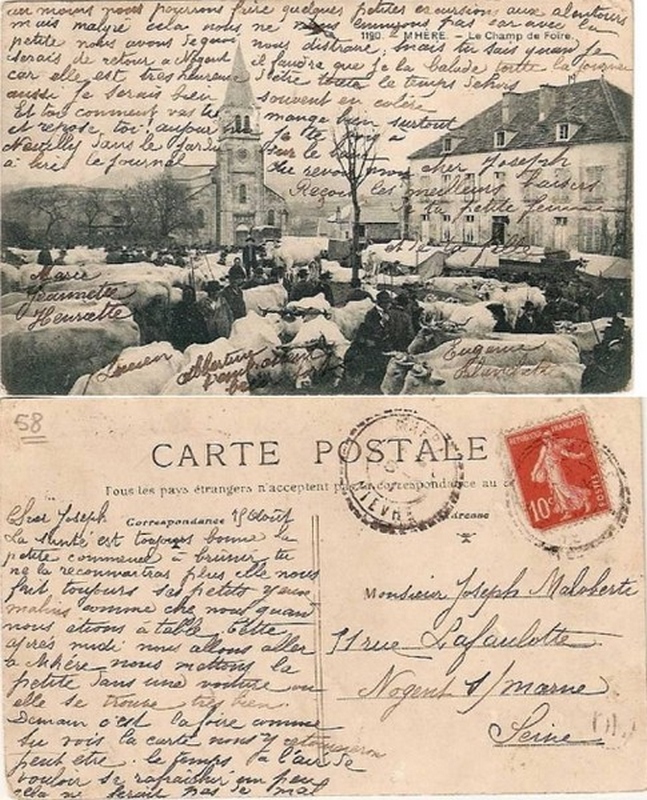 au moins nous pourrons faire quelques petites excursions aux alentours
mais malgré cela nous ne nous ennuyons pas car avec la
petite nous avons de quoi nous distraire, mais tu sais quand je
serais de retour a Nogent il faudra que je la balade toute la journée
car elle est très heureuse d'être toute le temps dehors
aussi je serais bien souvent en colère
Et toi comment vas tu mange bien surtout
et repose toi, aujour
dans le jardin sur le banc
a lire le journal
Au revoir mon cher Joseph
Reçois les meilleurs baisers
de ta petite femme
et de ta fille
1190. - MHÈRE. - Le Champ de Foire.
Marie
Jeannette
Henriette
Lucien
Albertine
Eugénie
58
CARTE POSTALE
Tous les pays étrangers n'acceptent pas la correspondance au
Correspondance
Adresse
NIÈVRE
RÉPUBLIQUE FRANÇAISE
10c
POSTES
Cher Joseph
15 Août
La santé est toujours bonne la
petite commence à brunir tu
ne la reconnaitras plus elle nous
fait toujours ses petits yeux
malins comme che nous quand
nous étions à table. Cette
après midi nous allons aller
a Mhère nous mettons la
petite dans une voiture ou
elle se trouve très bien.
Demain c'est la foire comme
tu vois la carte nous y retournerons
peut être. le temps a l'air de
vouloir se rafraîchir un peu
cela ne serait pas de mal
Monsieur Joseph Maloberti
51 rue Lafaulotte
Nogent s/ marne
Seine